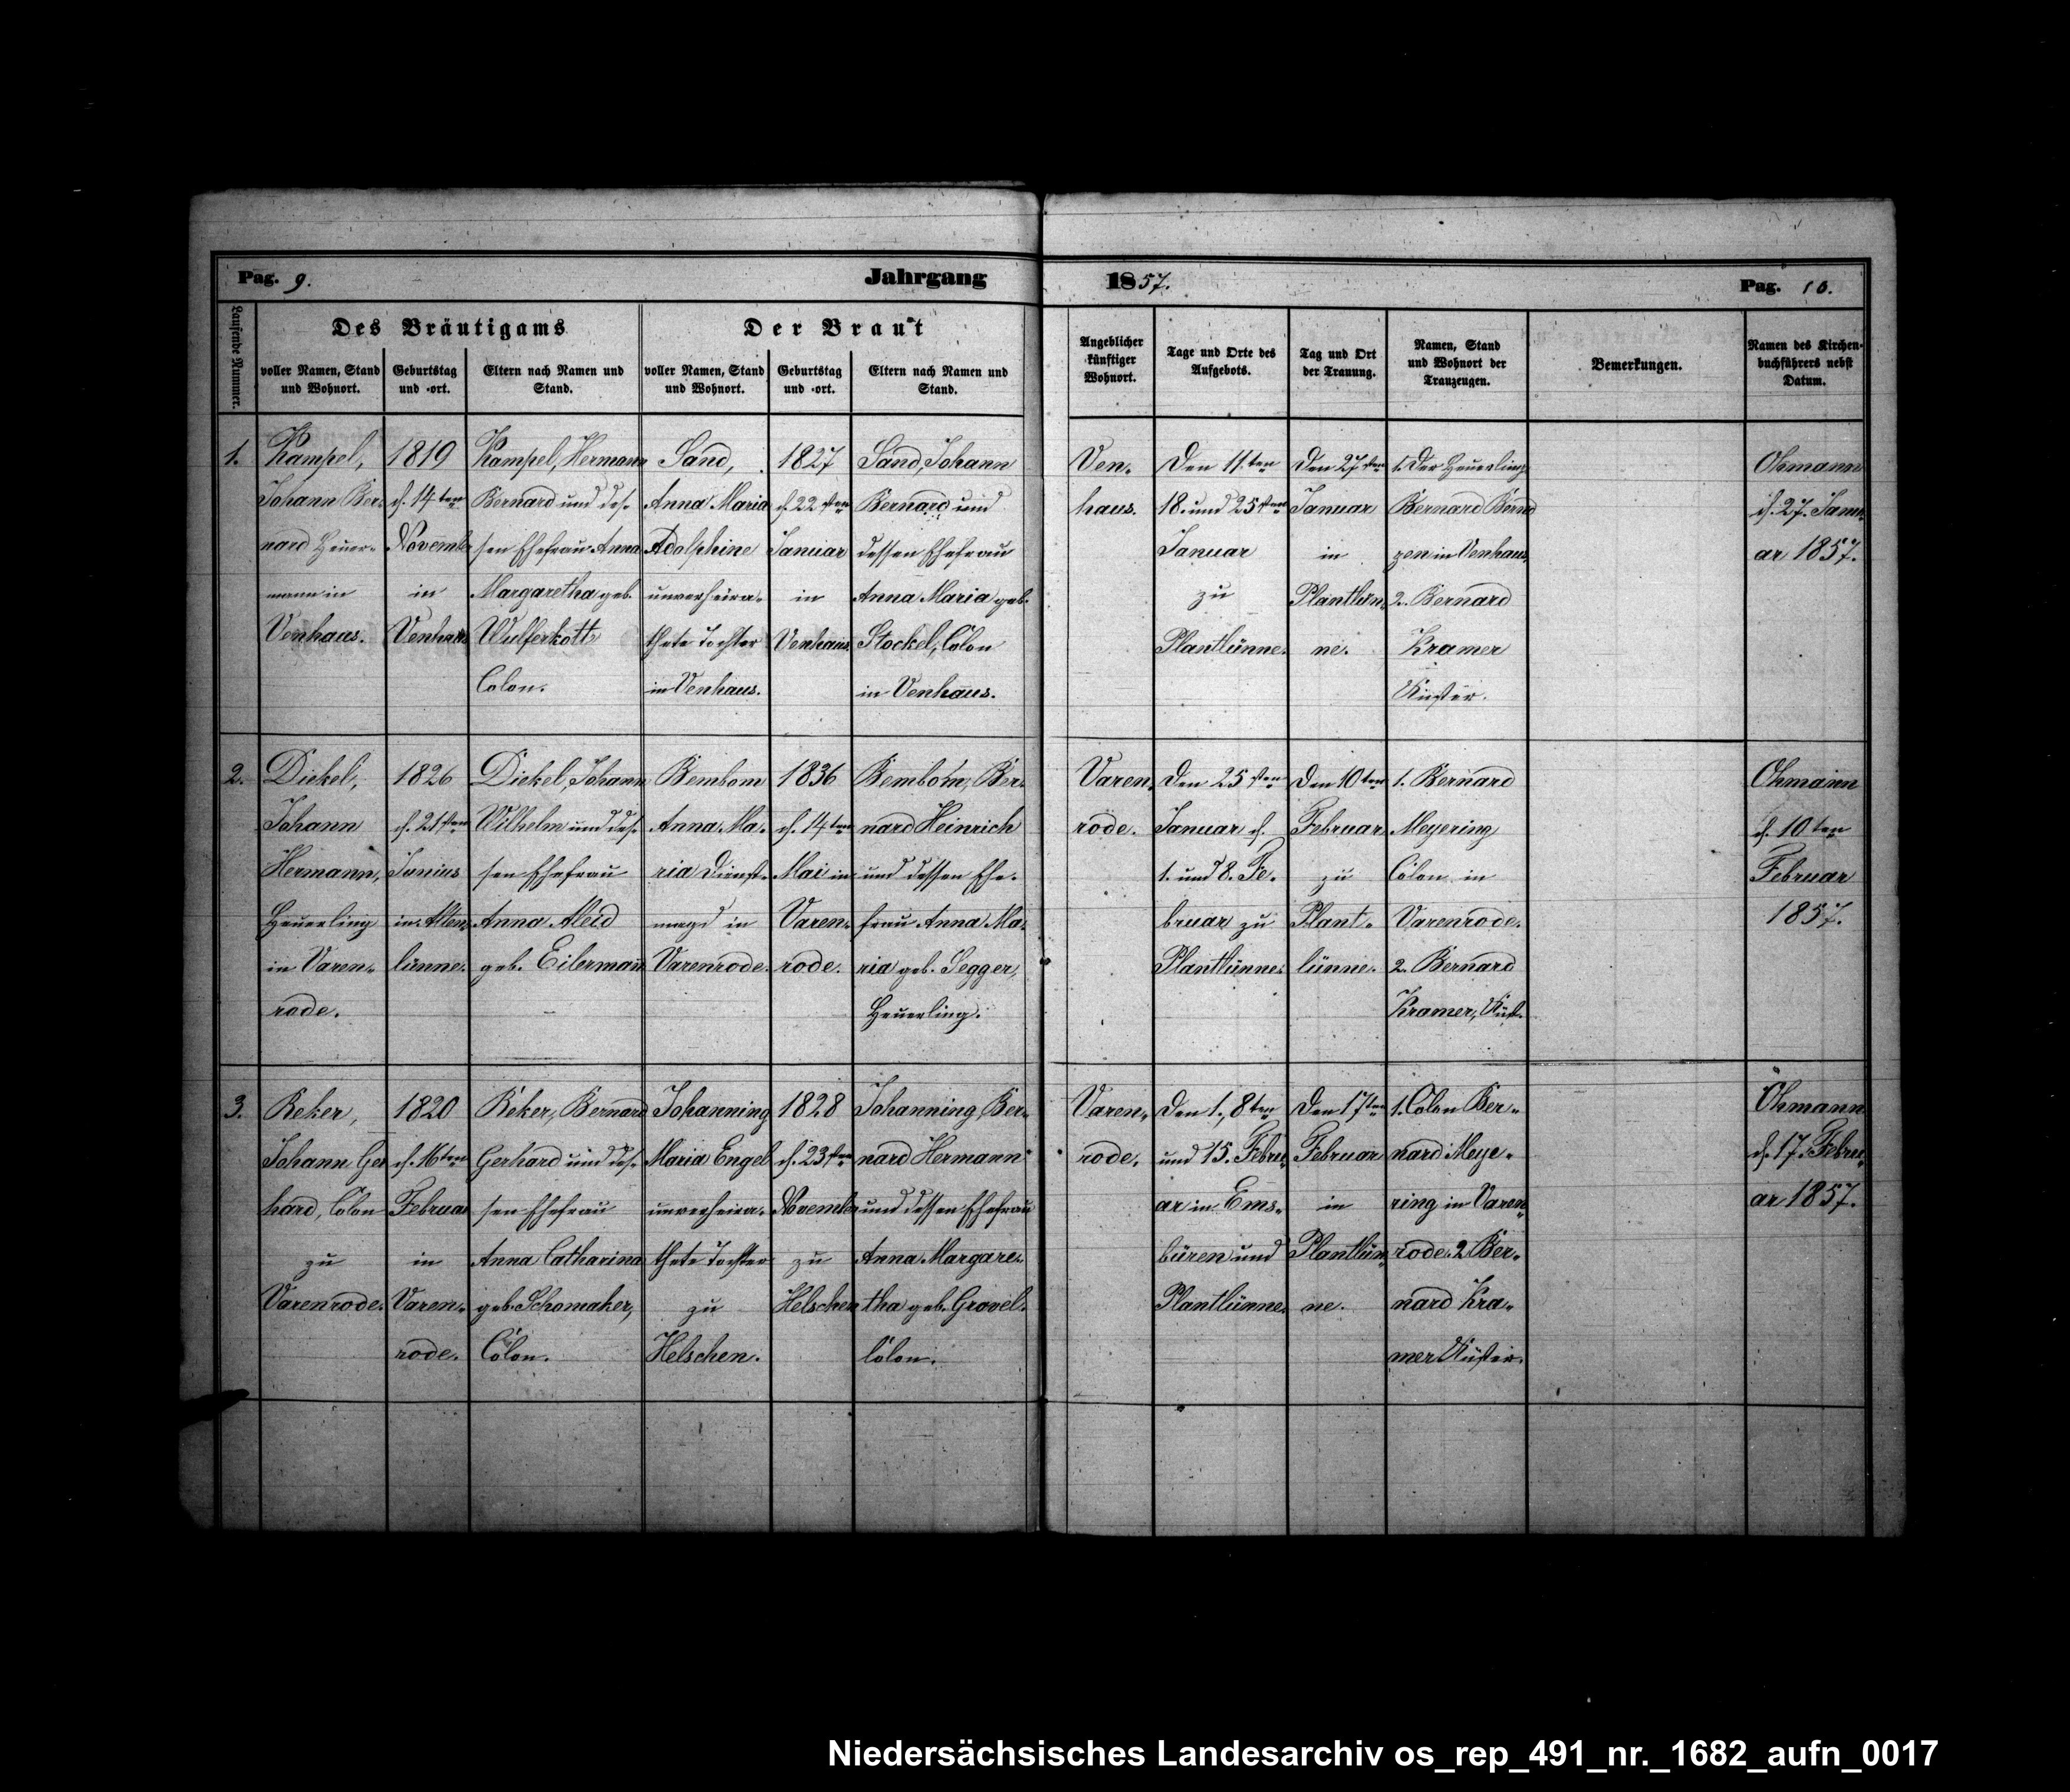 Pag. 9.
Jahrgang
1857.
Pag. 10.
Laufende Nummer.
Des Bräutigams
Der Braut
voller Namen, Stand
und Wohnort.
Geburtstag
und -ort.
Eltern nach Namen und
Stand.
voller Namen, Stand
und Wohnort.
Geburtstag
und -ort.
Eltern nach Namen und
Stand.
Angeblicher
künftiger
Wohnort.
Tage und Orte des
Aufgebots.
Tag und Ort
der Trauung.
Namen, Stand
und Wohnort der
Trauzeugen.
Bemerkungen.
Namen des Kirchen-
buchführers nebst
Datum.
1.
Kampel,
Johann Ber-
nard Heuer-
mann in
Venhaus.
1819
d. 14ten
November
in
Venhaus
Kampel, Hermann
Bernard und des-
sen Ehefrau Anna
Margaretha geb.
Wulferkott
Colon.
Sand,
Anna Maria
Adolphine
unverheira-
thete Tochter
in Venhaus.
1827
d. 22sten
Januar
in
Venhaus.
Sand, Johann
Bernard und
dessen Ehefrau
Anna Maria geb.
Stockel, Colon
in Venhaus.
Ven-
haus.
Den 11.ten
18. und 25sten
Januar
zu
Plantlünne.
Den 27sten
Januar
in
Plantlün-
ne.
1. Der Heuerling
Bernard Bernd
zen in Venhaus,
2. Bernard
Kramer
Küster.
Ohmann
d. 27. Janu-
ar 1857.
2.
Diekel,
Johann
Hermann,
Heuerling
in Varen-
rode.
1826
d. 21sten
Junius
in Alten-
lünne.
Diekel, Johann
Wilhelm und des-
sen Ehefrau
Anna Aleid
geb. Eilermann
Bembom
Anna Ma-
ria Dienst-
magd in
Varenrode.
1836
d. 14ten
Mai in
Varen-
rode.
Bembom, Ber-
nard Heinrich
und dessen Ehe-
frau Anna Ma-
ria geb. Segger,
Heuerling.
Varen-
rode.
Den 25sten
Januar d.
1. und 8. Fe-
bruar zu
Plantlünne.
Den 10ten
Februar
zu
Plant-
lünne.
1. Bernard
Meyering
Colon in
Varenrode.
2. Bernard
Kramer, Küst.
Ohmann
d. 10ten
Februar
1857.
3.
Reker,
Johann Ger
hard, Colon
zu
Varenrode.
1820
d. 16ten
Februar
in
Varen-
rode.
Reker, Bernard
Gerhard und des-
sen Ehefrau
Anna Catharina
geb. Schomaker,
Colon.
Johanning
Maria Engel
unverheira-
thete Tochter
zu
Helschen.
1828
d. 23sten
November
zu
Helschen
Johanning Ber-
nard Hermann
und dessen Ehefrau
Anna Margare-
tha geb. Grovel.
Colon.
Varen-
rode.
Den 1., 8ten
und 15. Febru-
ar in Ems-
büren und
Plantlünne.
Den 17ten
Februar
in
Plantlün-
ne.
1. Colon Ber-
nard Meye-
ring in Varen-
rode. 2. Ber-
nard Kra-
mer Küster.
Ohmann
d. 17. Febru-
ar 1857.
Niedersächsisches Landesarchiv os_rep_491_nr._1682_aufn_0017